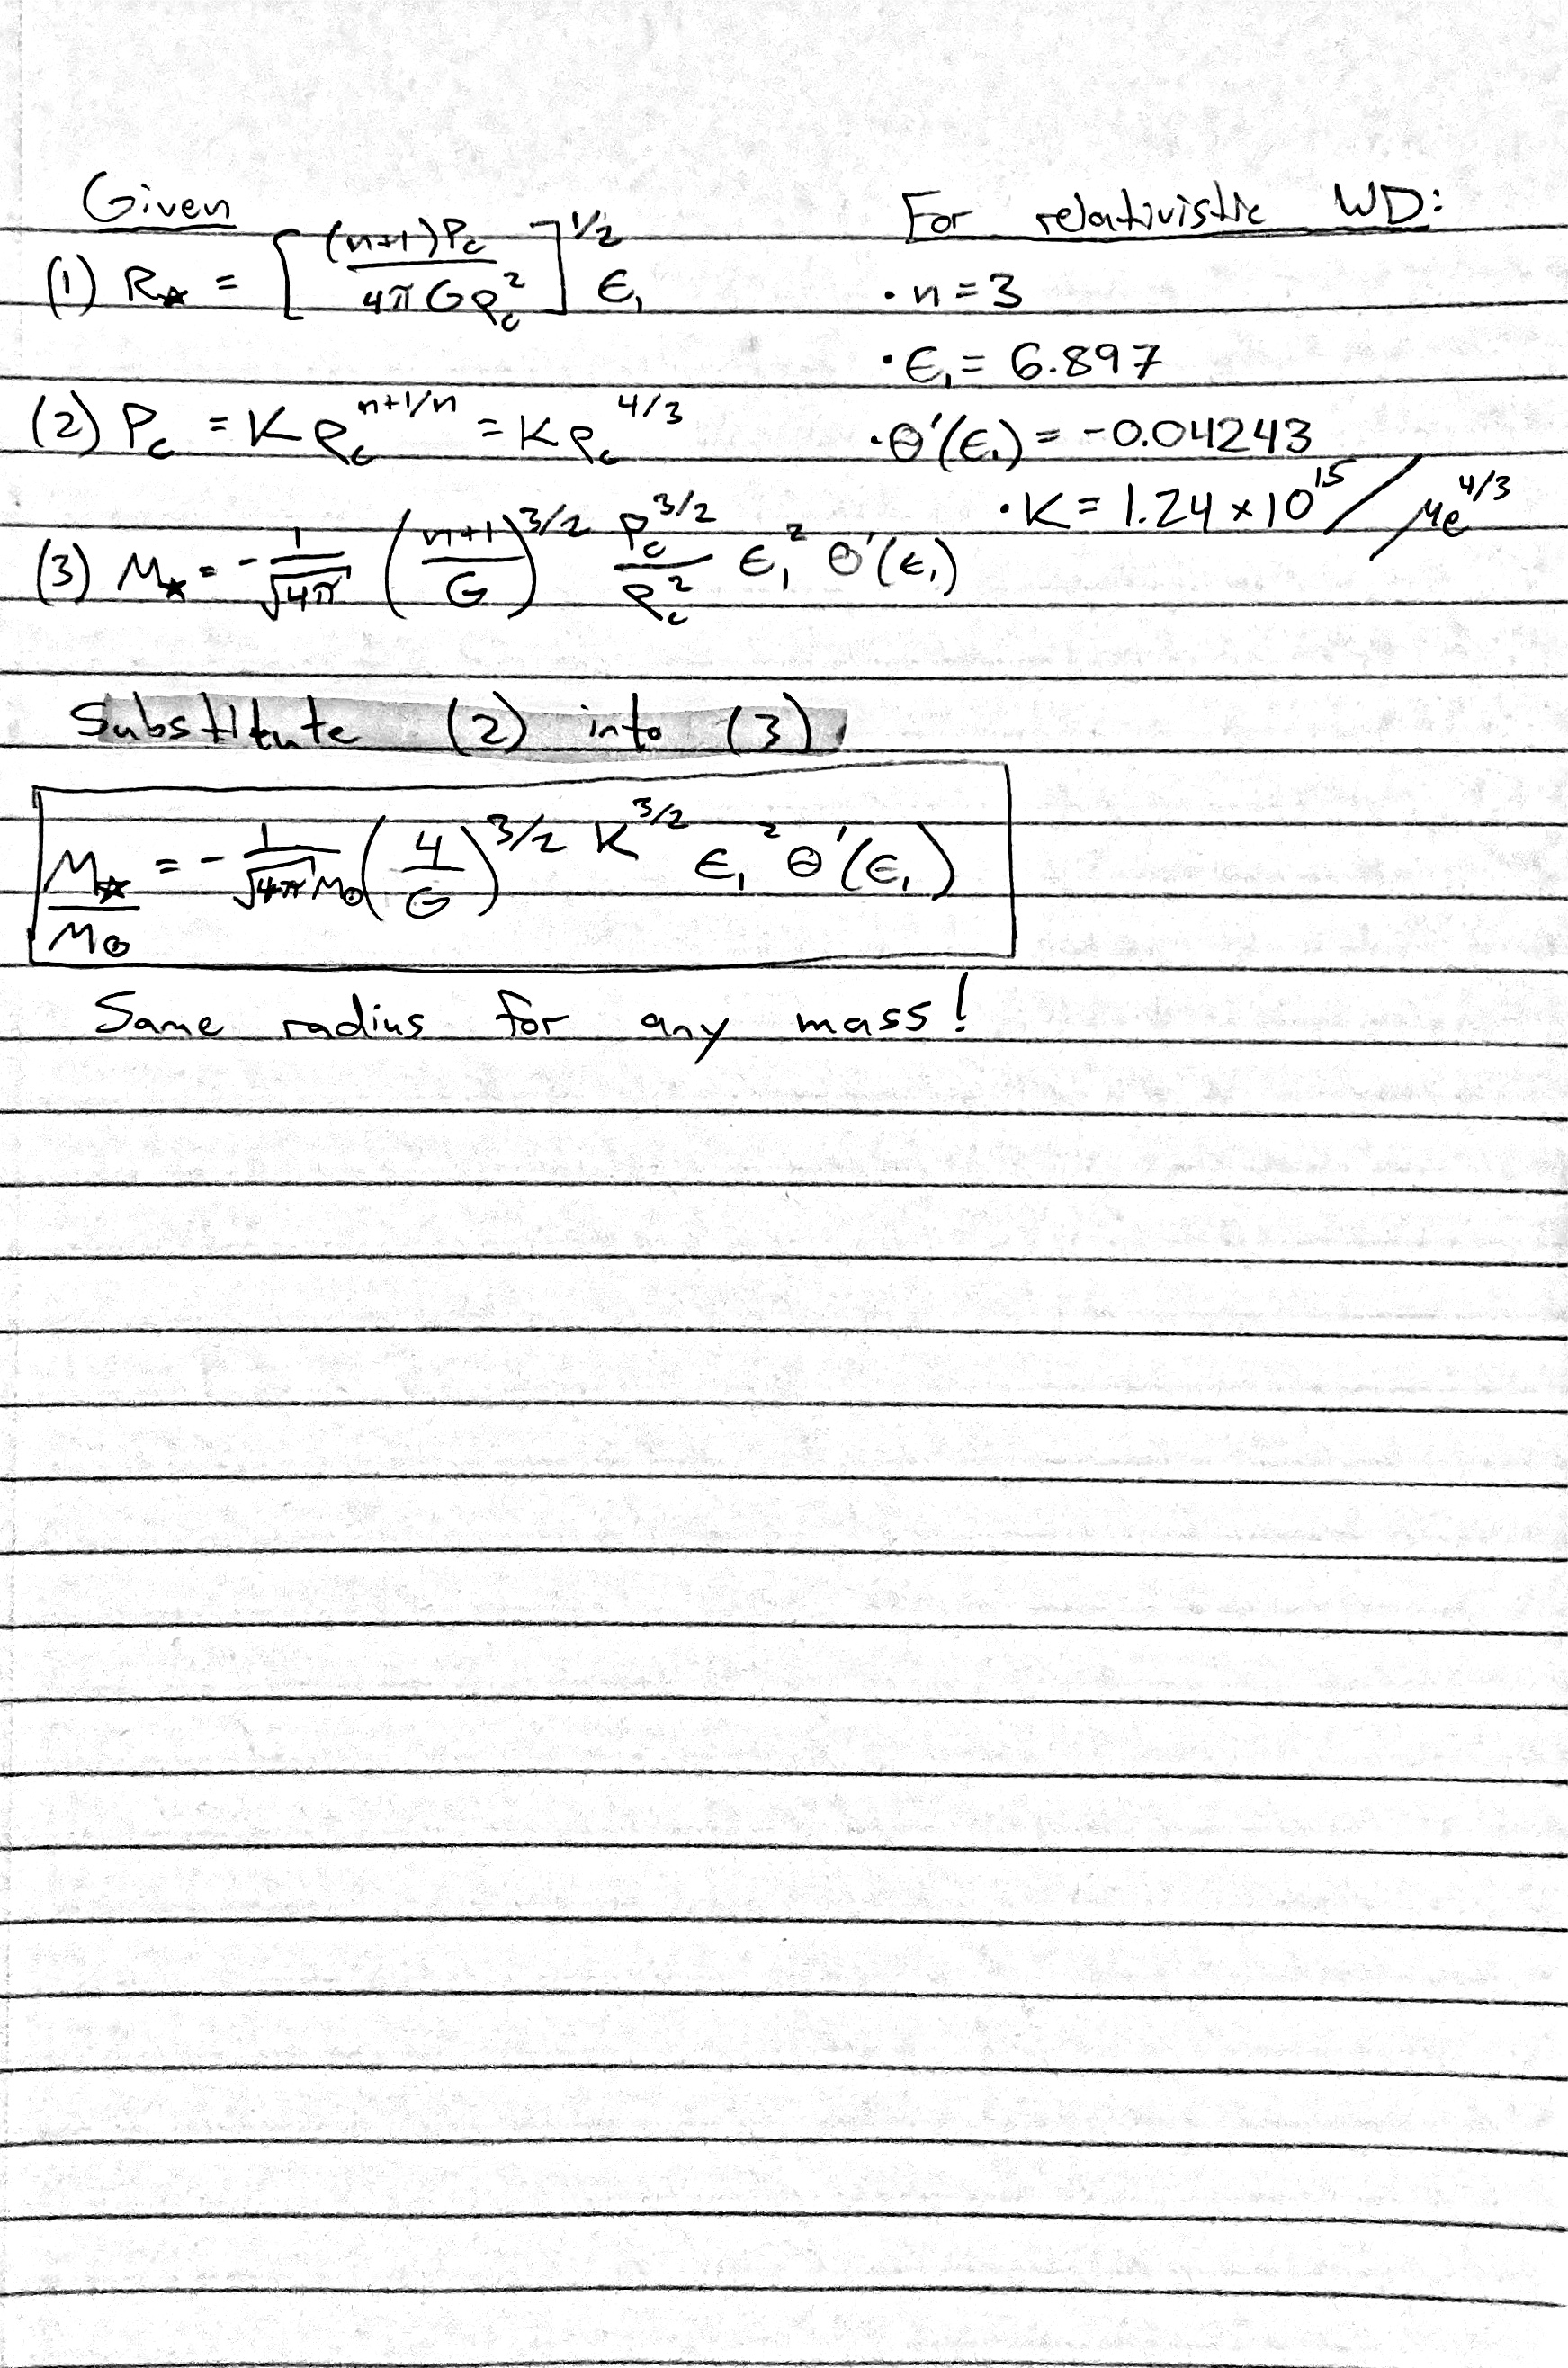 Given
(1) R★ = [(n+1)Pc / 4πGρc²]^1/2 ϵ₁
(2) Pc = Kρc^n+1/n = Kρc^4/3
(3) M★ = -1/√4π ((n+1)/G)^3/2 Pc^3/2/ρc² ϵ₁² θ'(ϵ₁)
For relativistic WD:
• n = 3
• ϵ₁ = 6.897
• θ'(ϵ₁) = -0.04243
• K = 1.24 × 10^15 / μe^4/3
Substitute (2) into (3)
M★/M⊙ = -1/√4π M⊙ (4/G)^3/2 K^3/2 ϵ₁² θ'(ϵ₁)
Same radius for any mass!